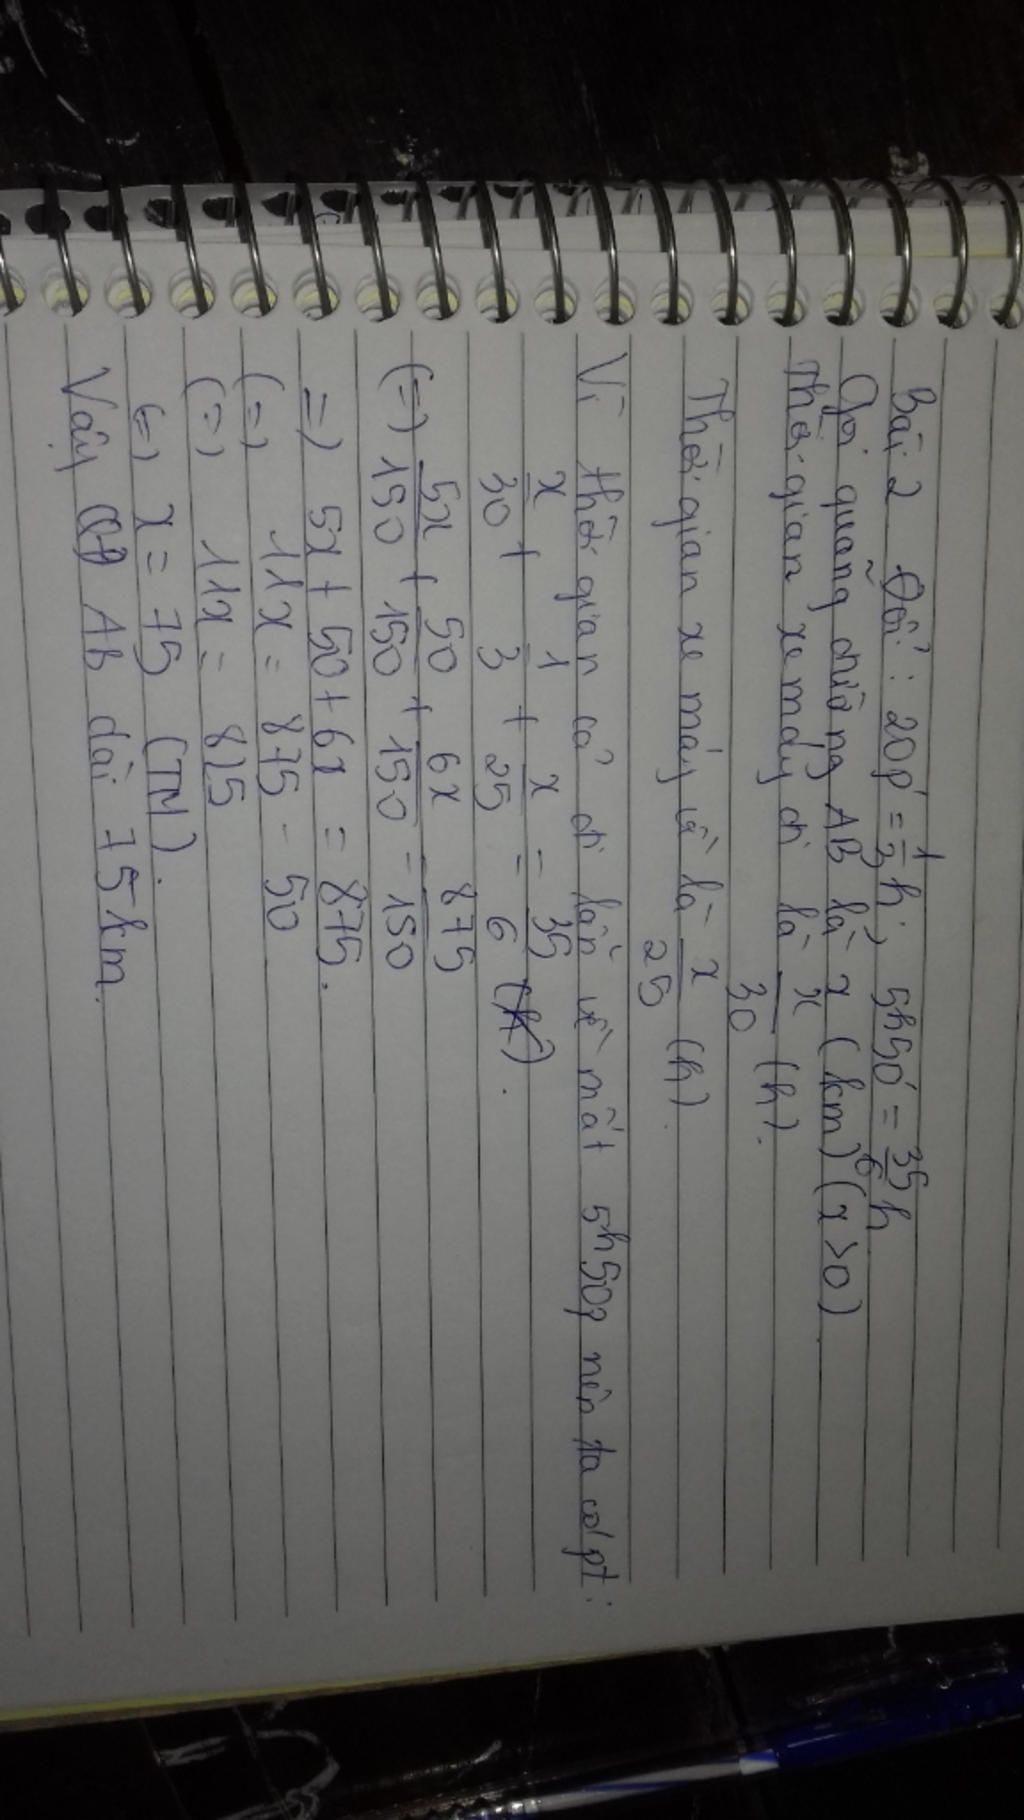 Bài 2 Đổi: 20p' = 1/3 h; 5h50' = 35/6 h
Gọi quãng đường AB là x (km) (x>0)
Thời gian xe máy đi là x/30 (h).
Thời gian xe máy về là x/25 (h).
Vì thời gian cả đi lẫn về mất 5h50p nên ta có pt:
x/30 + 1/3 + x/25 = 35/6 (h).
(=) 5x/150 + 50/150 + 6x/150 = 875/150
=) 5x + 50 + 6x = 875.
(=) 11x = 875 - 50
(=) 11x = 825
(=) x = 75 (TM).
Vậy QĐ AB dài 75km.